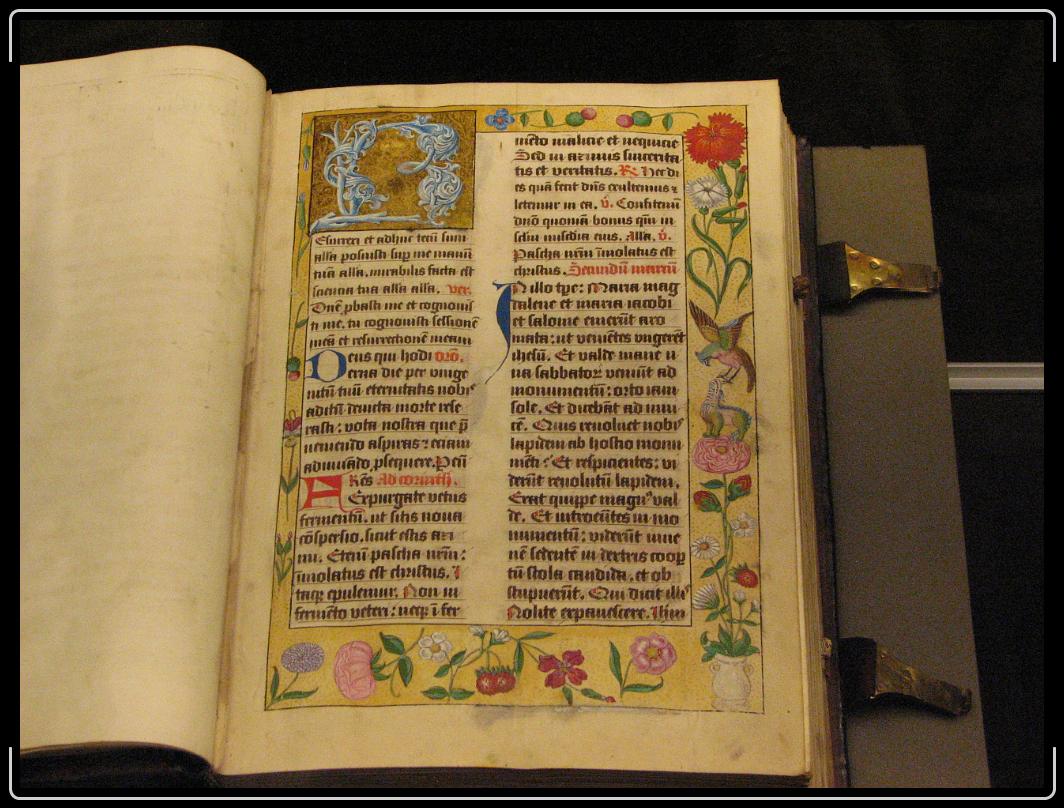 Esurrexi et adhuc tecū sum
alla posuisti sup me manū
tuā alla. mirabilis facta est
sciencia tua alla alla. ver.
Dnē pbasti me et cognouis
ti me. tu cognouisti sessionē
meā et resurrectionē meam
Deus qui hodi orō.
erna die per vnige
nitū tuū eternitatis nobis
aditū deuicta morte rese
rasti: vota nostra que p̄
ueniendo aspiras: eciam
adiuuādo, psequere. Per
Res Ad corinth.
Expurgate vetus
fermentū. ut sitis noua
cōspersio. sicut estis azi
mi. Etenī pascha nrm̄:
īmolatus est christus. I
taqꝫ epulemur. Non in
fermēto veteri: neqꝫ ī fer
mēto malicie et nequicie
Sed in azimis sincerita
tis et veritatis. R Hec di
es quā fecit dn̄s exultemus ⁊
letemur in ea. v̄. Confitemī
dn̄o quoniā bonus qm̄ in
sclm̄ misdia eius. Alla. v̄.
Pascha nrm̄ īmolatus est
christus. Secundū marcū
In illo tpe: Maria mag
dalene et maria iacobi
et salome emerūt aro
mata: ut veniētes vngerēt
ihesū. Et valde mane u
na sabbatoꝝ veniūt ad
monumentū: orto iam
sole. Et dicebāt ad inui
cē. Quis reuoluet nobis
lapidem ab hostio monu
mēti: Et respicientes: vi
derūt reuolutū lapidem.
Erat quippe magnꝰ val
de. Et introeūtes in mo
numentū: viderūt iuue
nē sedentē in dextris coop
tū stola candida. et ob
stupuerūt. Qui dicit illis
Nolite expauescere. Ihm̄